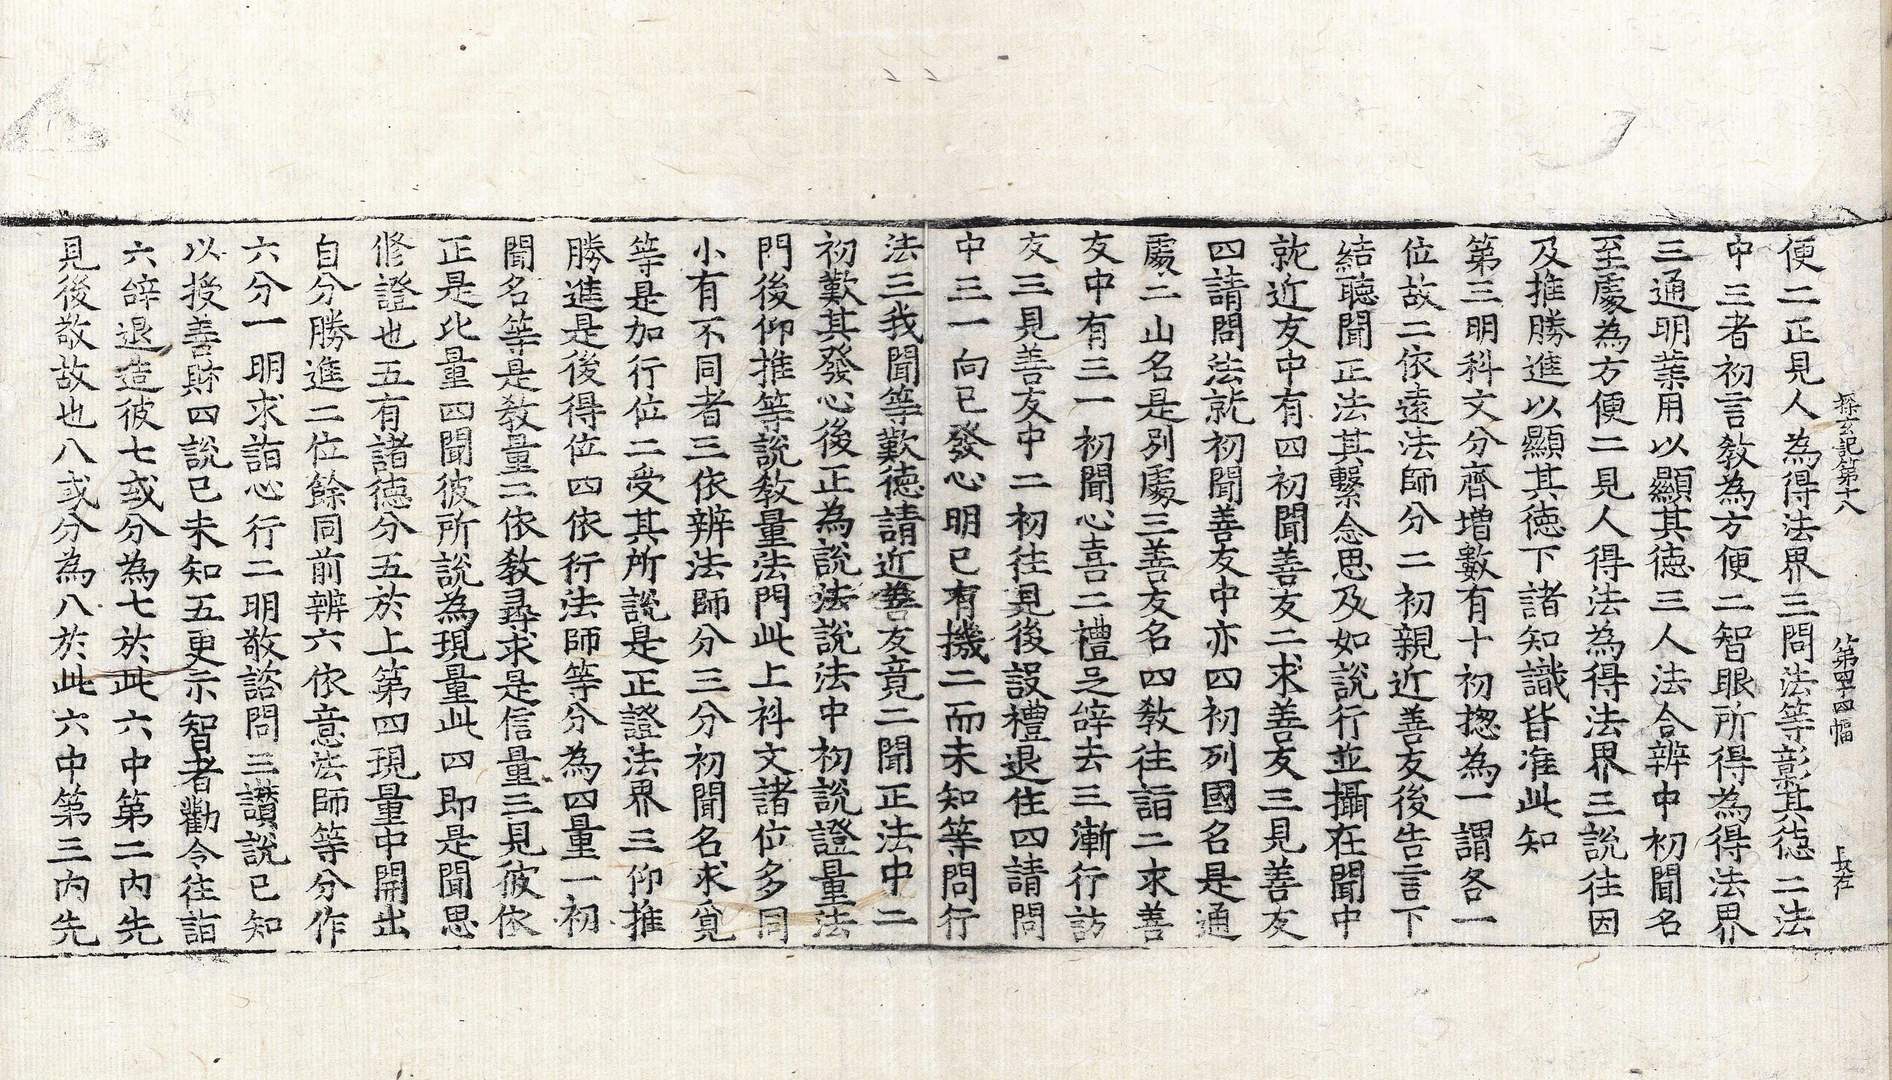 探玄記第十八 第四十四幅 長在
便二正見人為得法界三問法等彰其德二法
中三者初言教為方便二智眼所得為得法界
三通明業用以顯其德三人法合辨中初聞名
至處為方便二見人得法為得法界三說往因
及推勝進以顯其德下諸知識皆准此知
第三明科文分齊增數有十初揔為一謂各一
位故二依遠法師分二初親近善友後告言下
結聽聞正法其繫念思及如說行並攝在聞中
就近友中有四初聞善友二求善友三見善友
四請問法就初聞善友中亦四初列國名是通
處二山名是別處三善友名四教往詣二求善
友中有三一初聞心喜二禮足辞去三漸行訪
友三見善友中二初往見後設禮退住四請問
中三一向已發心明已有機二而未知等問行
法三我聞等歎德請近善友竟二聞正法中二
初歎其發心後正為說法說法中初說證量法
門後仰推等說教量法門此上科文諸位多同
小有不同者三依辨法師分三分初聞名求覓
等是加行位二受其所說是正證法界三仰推
勝進是後得位四依行法師等分為四量一初
聞名等是教量二依教尋求是信量三見彼依
正是比量四聞彼所說為現量此四即是聞思
修證也五有諸德分五於上第四現量中開出
自分勝進二位餘同前辨六依意法師等分作
六分一明求詣心行二明敬諮問三讚說已知
以授善財四說已未知五更示智者勸令往詣
六辞退造彼七或分為七於此六中第二內先
見後敬故也八或分為八於此六中第三內先